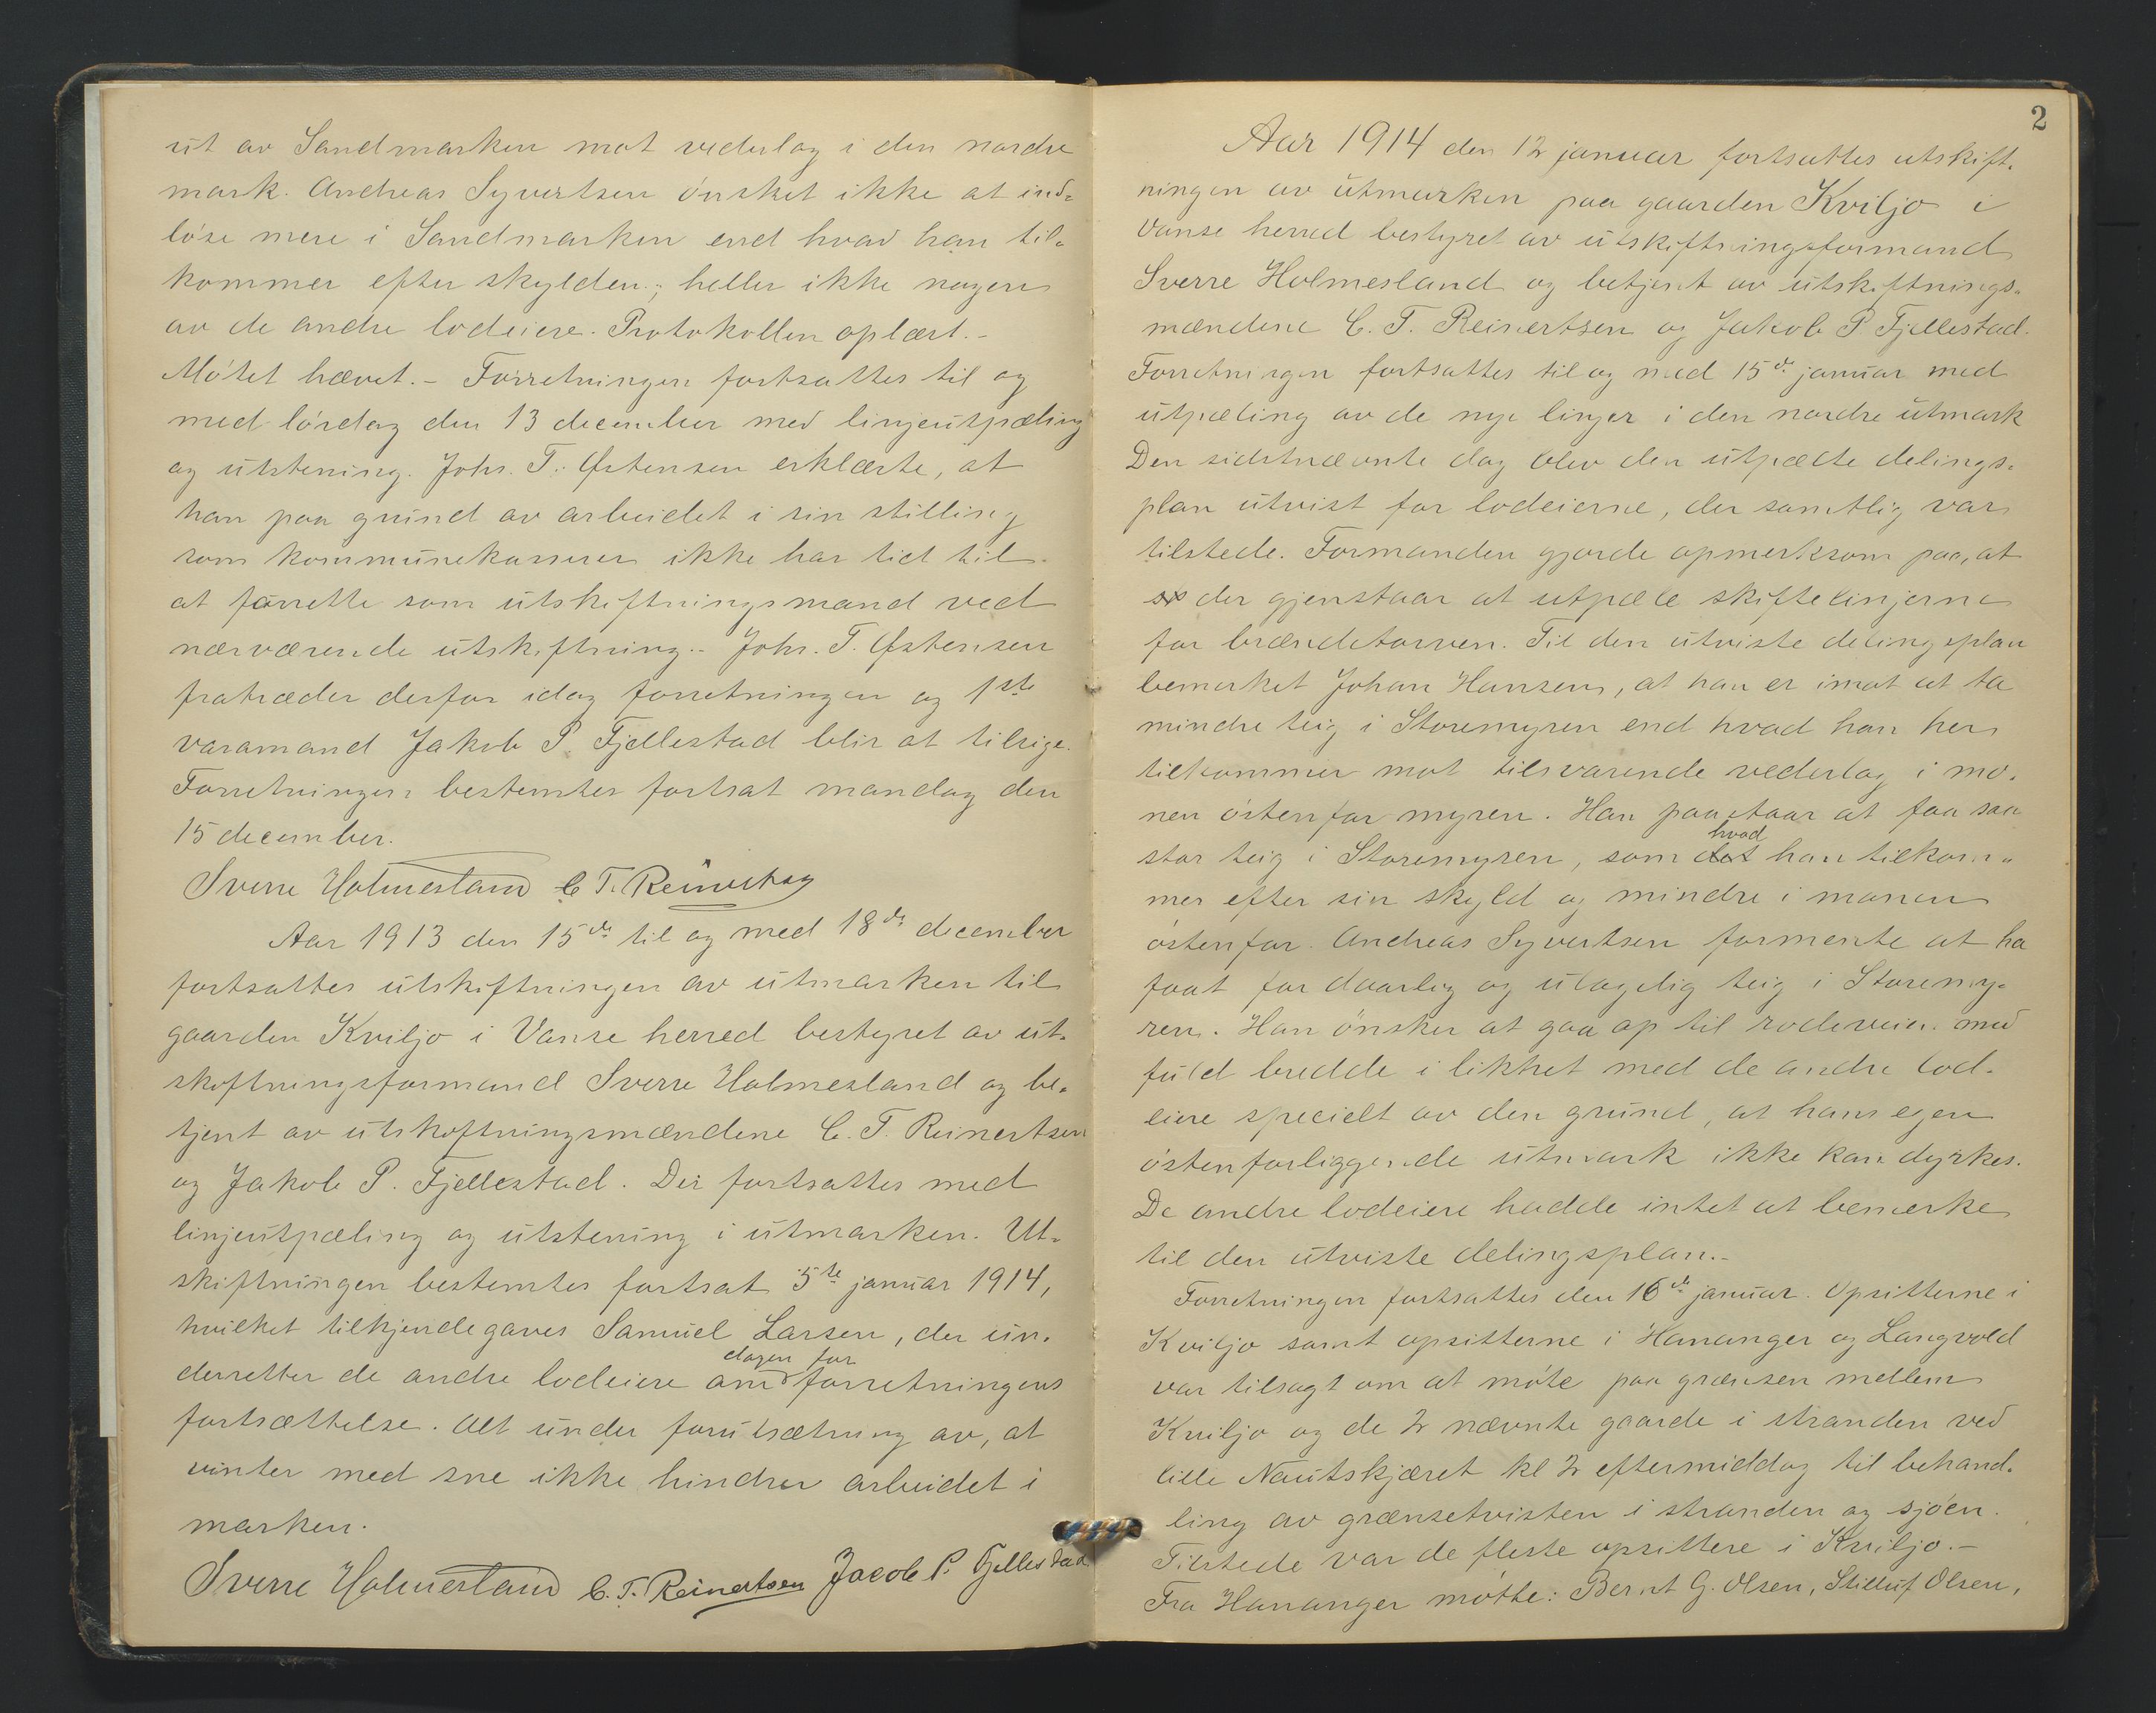 ut av Sandmarken mot vederlag i den nordre
mark. Andreas Syvertsen önsket ikke at ind-
löse mere i Sandmarken end hvad han til-
kommer efter skylden; heller ikke nogen
av de andre lodeiere. Protokollen oplæst.-
Mötet hævet.- Forretningen fortsattes til og
med lördag den 13 december med linjeutpæling
og utstening. Johs. T. Östensen erklærte, at
han paa grund av arbeidet i sin stilling
som kommunekasserer ikke har tid til
at forrette som utskiftningsmand ved
nærværende utskiftning.- Johs. T. Östensen
fratræder derfor idag forretningen og 1ste
varamand Jakob P. Fjellestad blir at tilsige.
Forretningen bestemtes fortsat mandag den
15 december.
Sverre Holmesland C. T. Reinertsen
Aar 1913 den 15de til og med 18de december
fortsattes utskiftningen av utmarken til
gaarden Kviljo i Vanse herred bestyret av ut-
skiftningsformand Sverre Holmesland og be-
tjent av utskiftningsmændene C. T. Reinertsen
og Jakob P. Fjellestad. Der fortsattes med
linjeutpæling og utstening i utmarken. Ut-
skiftningen bestemtes fortsat 5te januar 1914,
hvilket tilkjendegaves Samuel Larsen, der un-
dagen for
derretter de andre lodeiere om forretningens
fortsættelse. Alt under forutsætning av, at
vinter med sne ikke hindrer arbeidet i
marken.
Sverre Holmesland C. T. Reinertsen Jacob P. Fjellestad
2
Aar 1914 den 12 januar fortsattes utskift-
ningen av utmarken paa gaarden Kviljo i
Vanse herred bestyret av utskiftningsformand
Sverre Holmesland og betjent av utskiftnings-
mændene C. T. Reinertsen og Jakob P Fjellestad.
Forretningen fortsattes til og med 15de januar med
utpæling av de nye linjer i den nordre utmark
Den sidstnævnte dag blev den utpælte delings-
plan utvist for lodeierne, der samtlig var
tilstede. Formanden gjorde opmerksom paa, at
der gjenstaar at utpæle skiftelinjerne
for brændetorven. Til den utviste delingsplan
bemerket Johan Hansen, at han er imot at ta
mindre teig i Storemyren end hvad han her
tilkommer mot tilsvarende vederlag i mo-
nen östenfor myren. Han paastaar at faa saa
hvad
stor teig i Storemyren, som det han tilkom-
mer efter sin skyld og mindre i monen
östenfor. Andreas Syvertsen formente at ha
faat for daarlig og ulagelig teig i Storemy-
ren. Han önsker at gaa op til rodeveien med
fuld bredde i likhet med de andre lod-
eiere specielt av den grund, at hans egen
östenforliggende utmark ikke kan dyrkes.
De andre lodeiere hadde intet at bemerke
til den utviste delingsplan.-
Forretningen fortsattes den 16de januar. Opsitterne i
Kviljo samt opsitterne i Hananger og Langvold
var tilsagt om at möte paa grænsen mellem
Kviljo og de 2 nævnte gaarde i stranden ved
lille Nautskjæret kl 2 eftermiddag til behand-
ling av grænsetvisten i stranden og sjöen.
Tilstede var de fleste opsittere i Kviljo.-
Fra Hananger mötte: Bernt G. Olsen, Olsen,